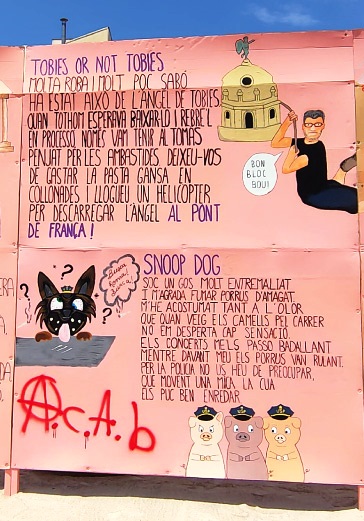 TOBIES OR NOT TOBIES
MOLTA ROBA I MOLT POC SABÓ
HA ESTAT AIXÒ DE L'ÀNGEL DE TOBIES
QUAN TOTHOM ESPERAVA BAIXAR-LO I REBRE'L
EN PROCESSO NOMÉS VAM TENIR AL TOMÀS
PENJAT PER LES AMBASTIDES. DEIXEU-VOS
DE GASTAR LA PASTA GANSA EN
COLLONADES I LLOGUEU UN HELICÒPTER
PER DESCARREGAR L'ÀNGEL AL PONT
DE FRANÇA!
BON
BLOC
BOU!
SNOOP DOG
SOC UN GOS MOLT ENTREMALIAT
I M'AGRADA FUMAR PORRUS D'AMAGAT.
M'HE ACOSTUMAT TANT A L'OLOR
QUE QUAN VEIG ELS CAMELLS PEL CARRER
NO EM DESPERTA CAP SENSACIÓ.
ELS CONCERTS MELS PASSO BADALLANT
MENTRE DAVANT MEU ELS PORRUS VAN RULANT.
PER LA POLICIA NO US HEU DE PREOCUPAR,
QUE MOVENT UNA MICA LA CUA
ELS PUC BEN ENREDAR
? ? ? ?
A.c.A.b